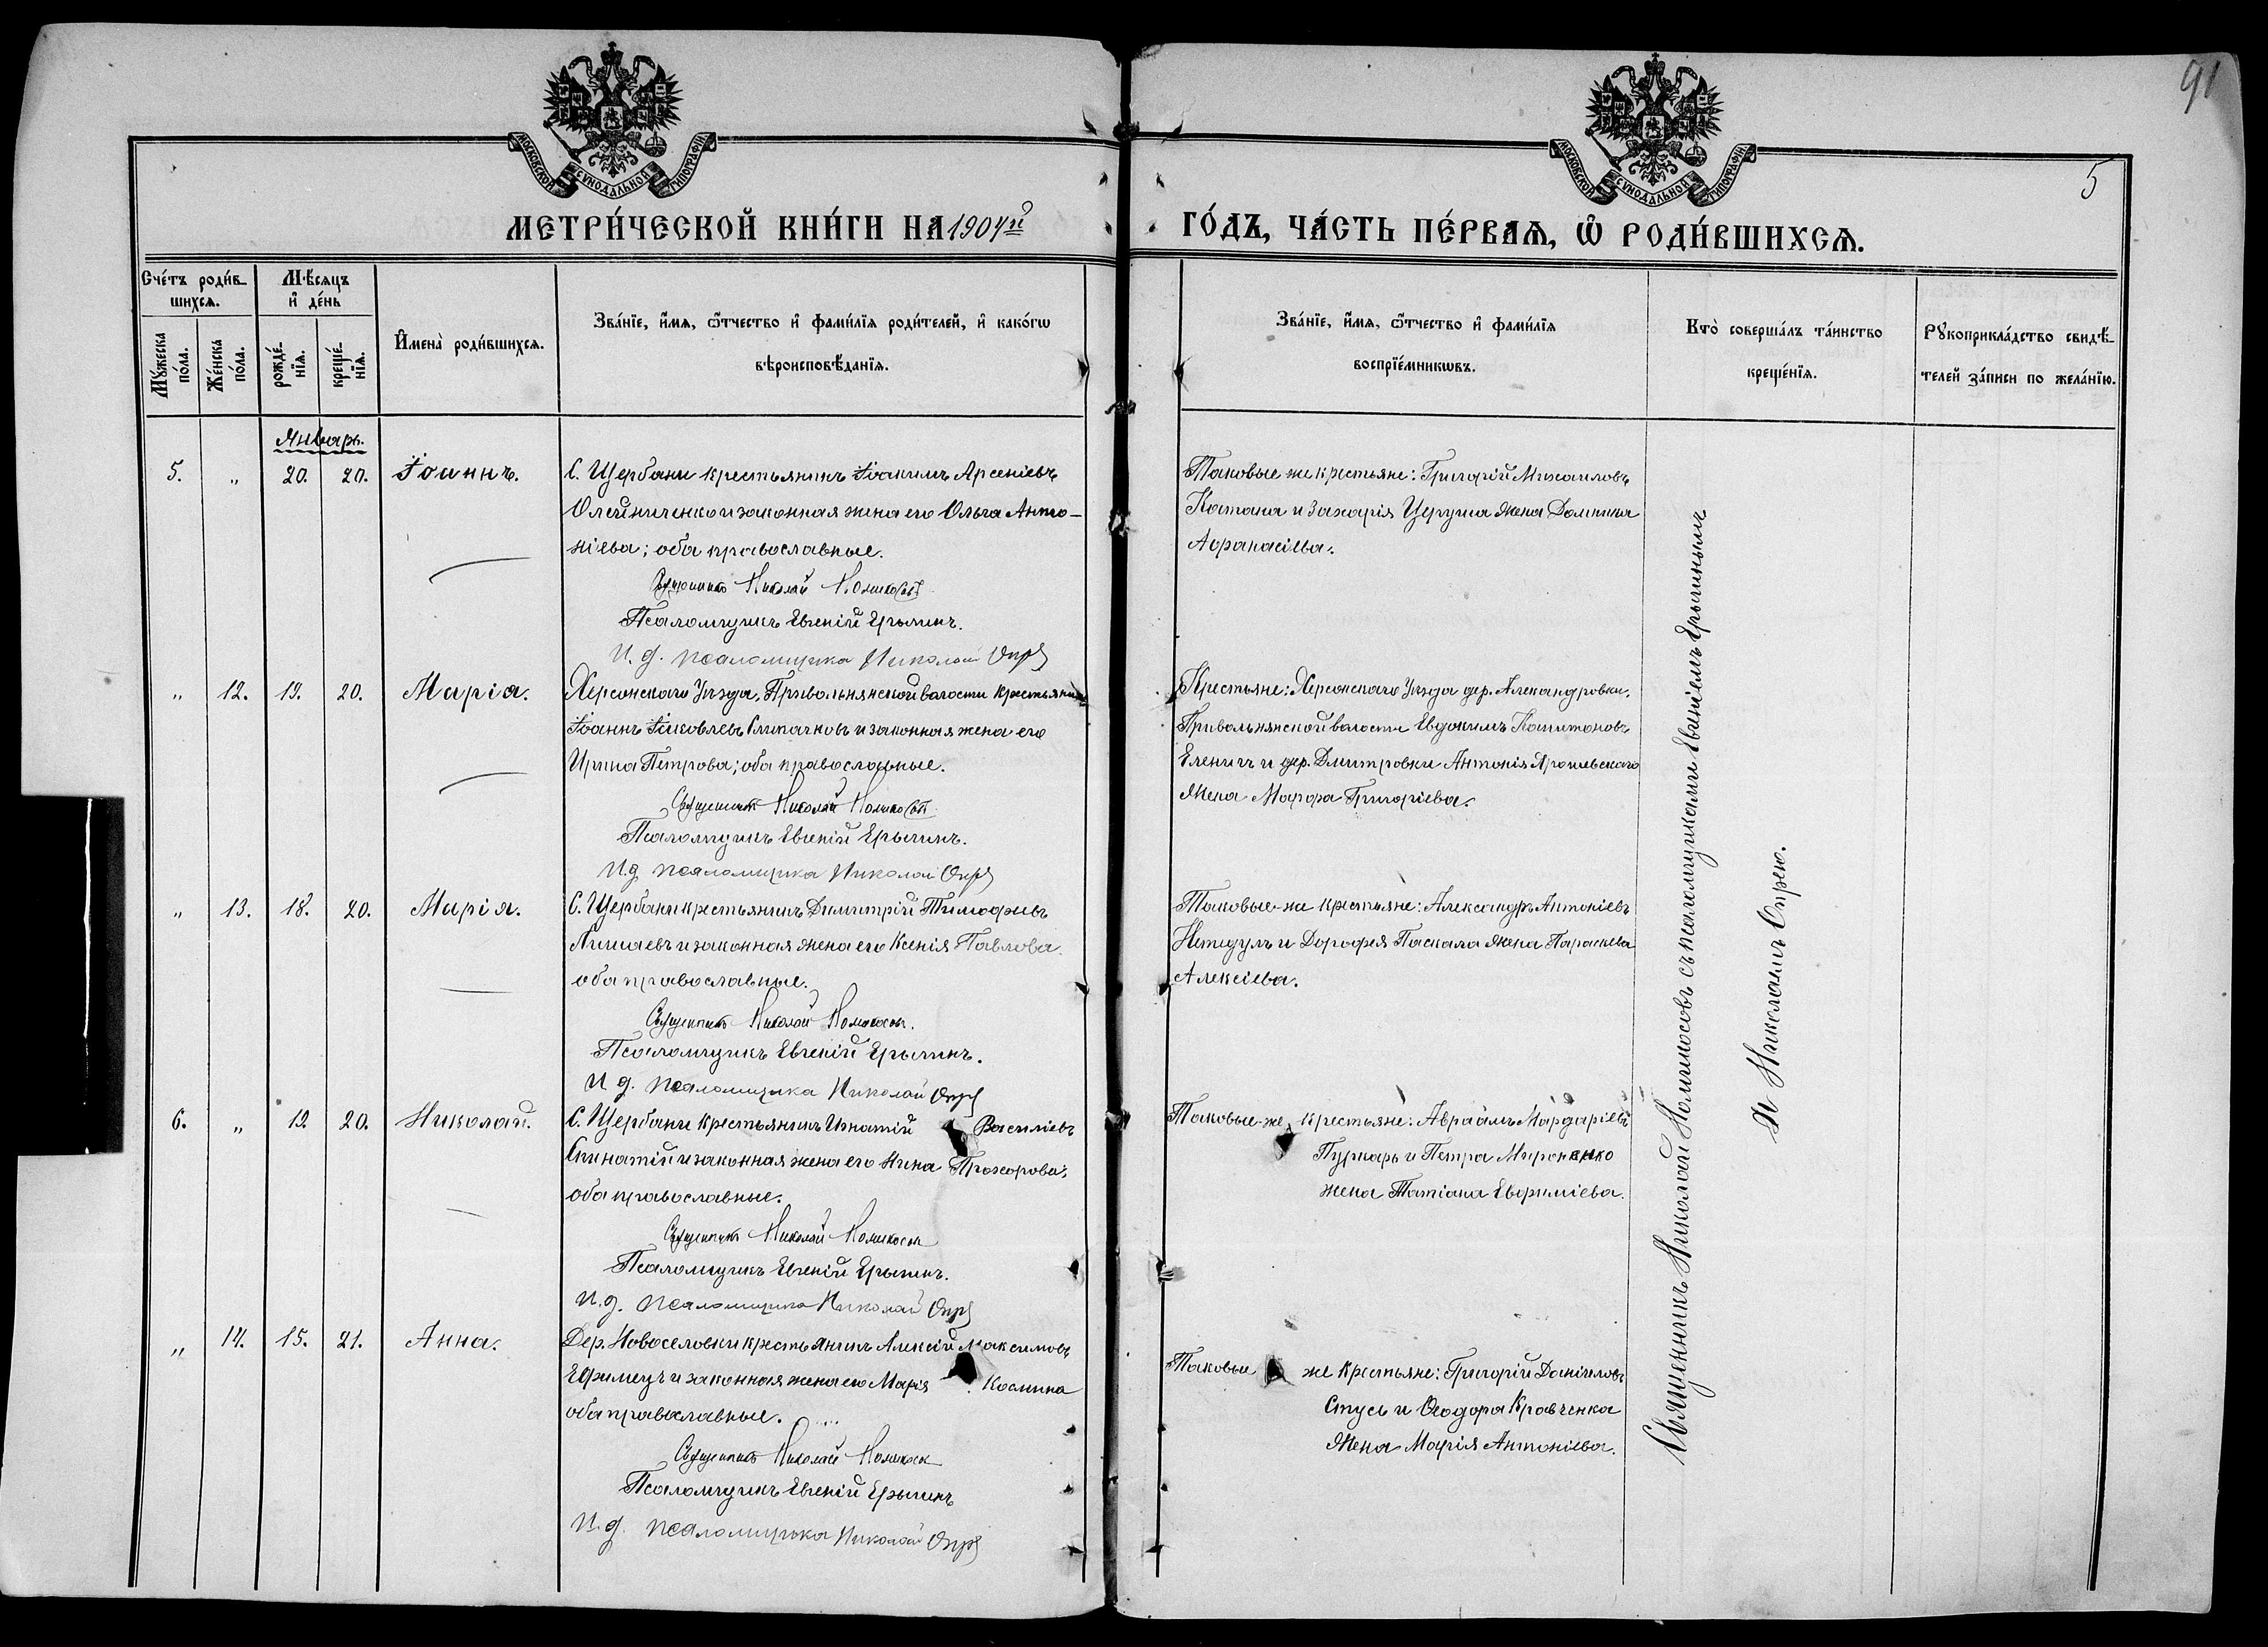 91
5
МОСКОВСКОЙ СѴНОДАЛЬНОЙ ТИПОГРАФІИ
МОСКОВСКОЙ СѴНОДАЛЬНОЙ ТИПОГРАФІИ
МЕТРИ́ЧЕСКОЙ КНИ́ГИ НА 1904й ГО́ДЪ, ЧА́СТЬ ПЕ́РВАѦ, Ѡ҆ РОДИ́ВШИХСѦ.
Сче́тъ роди́в-
шихсѧ.
Мꙋ́жеска по́ла.
Же́нска по́ла.
Мѣ́сѧцъ
и҆ де́нь
рожде́-
нїѧ.
креще́-
нїѧ.
И҆мена̀ роди́вшихсѧ.
Зва́нїе, и҆́мѧ, ѻ҆́тчество и҆ фами́лїѧ роди́телей, и҆ како́гѡ
вѣроисповѣ́данїѧ.
Зва́нїе, и҆́мѧ, ѻ҆́тчество и҆ фами́лїѧ
воспрїе́мникѡвъ.
Кто̀ соверша́лъ та́инство
креще́нїѧ.
Рꙋкоприкла́дство свидѣ́-
телей за́писи по жела́нїю.
Январь.
5. „ 20. 20. Іоаннъ.
С. Щербани крестьянинъ Іоакимъ Арсеніевъ
Олейниченко и законная жена его Ольга Анто-
ніева; оба православные.
Священникъ Николай
Псаломщикъ Евгеній Ерыгинъ.
И. д. псаломщика Николай Опря
Таковые же крестьяне: Григорій Михаиловъ
Катана и Захарія Церуша жена Домника
Аѳанасіева.
„ 12. 19. 20. Марія.
Херсонскаго Уѣзда, Привольнянской волости крестьянинъ
Іоаннъ Іаковлевъ и законная жена его
Ирина Петрова; оба православные.
Священникъ Николай
Псаломщикъ Евгеній Ерыгинъ.
И.д. псаломщика Николай Опря
Крестьяне: Херсонскаго Уѣзда дер. Александровки,
Привольнянской волости Евдокимъ Капитоновъ
Еленичъ и дер. Дмитровки Антонія
жена Марѳа Григоріева.
„ 13. 18. 20. Марія.
С. Щербани крестьянинъ Димитрій Тимоѳеевъ
и законная жена его Ксенія Павлова
оба православные.
Священникъ Николай
Псаломщикъ Евгеній Ерыгинъ.
И. д. псаломщика Николай Опря
Таковые-же крестьяне: Александръ Антоніевъ
и Дороѳея Паскала жена Параскева
Алексіева.
6. „ 19. 20. Николай.
С. Щербани крестьянинъ Игнатій Василіевъ
и законная жена его Нина Прохорова;
оба православные.
Священникъ Николай
Псаломщикъ Евгеній Ерыгинъ.
И. д. псаломщика Николай Опря
Таковые-же крестьяне: Авраамъ Мардаріевъ
Пуркарь и Петра Мироненко
жена Татіана Евфиміева.
„ 14. 15. 21. Анна.
Дер. Новоселовки крестьянинъ Алексій Максимовъ
и законная жена его Марія Космина
оба православные.
Священникъ Николай
Псаломщикъ Евгеній Ерыгинъ
И. д. псаломщика Николай Опря
Таковые же крестьяне: Григорій Даніиловъ
Стусь и Ѳеодора Кравченка
жена Марія Антоніева.
Священникъ Николай съ псаломщиками Евгеніемъ Ерыгинымъ
и Николаемъ Опрею.